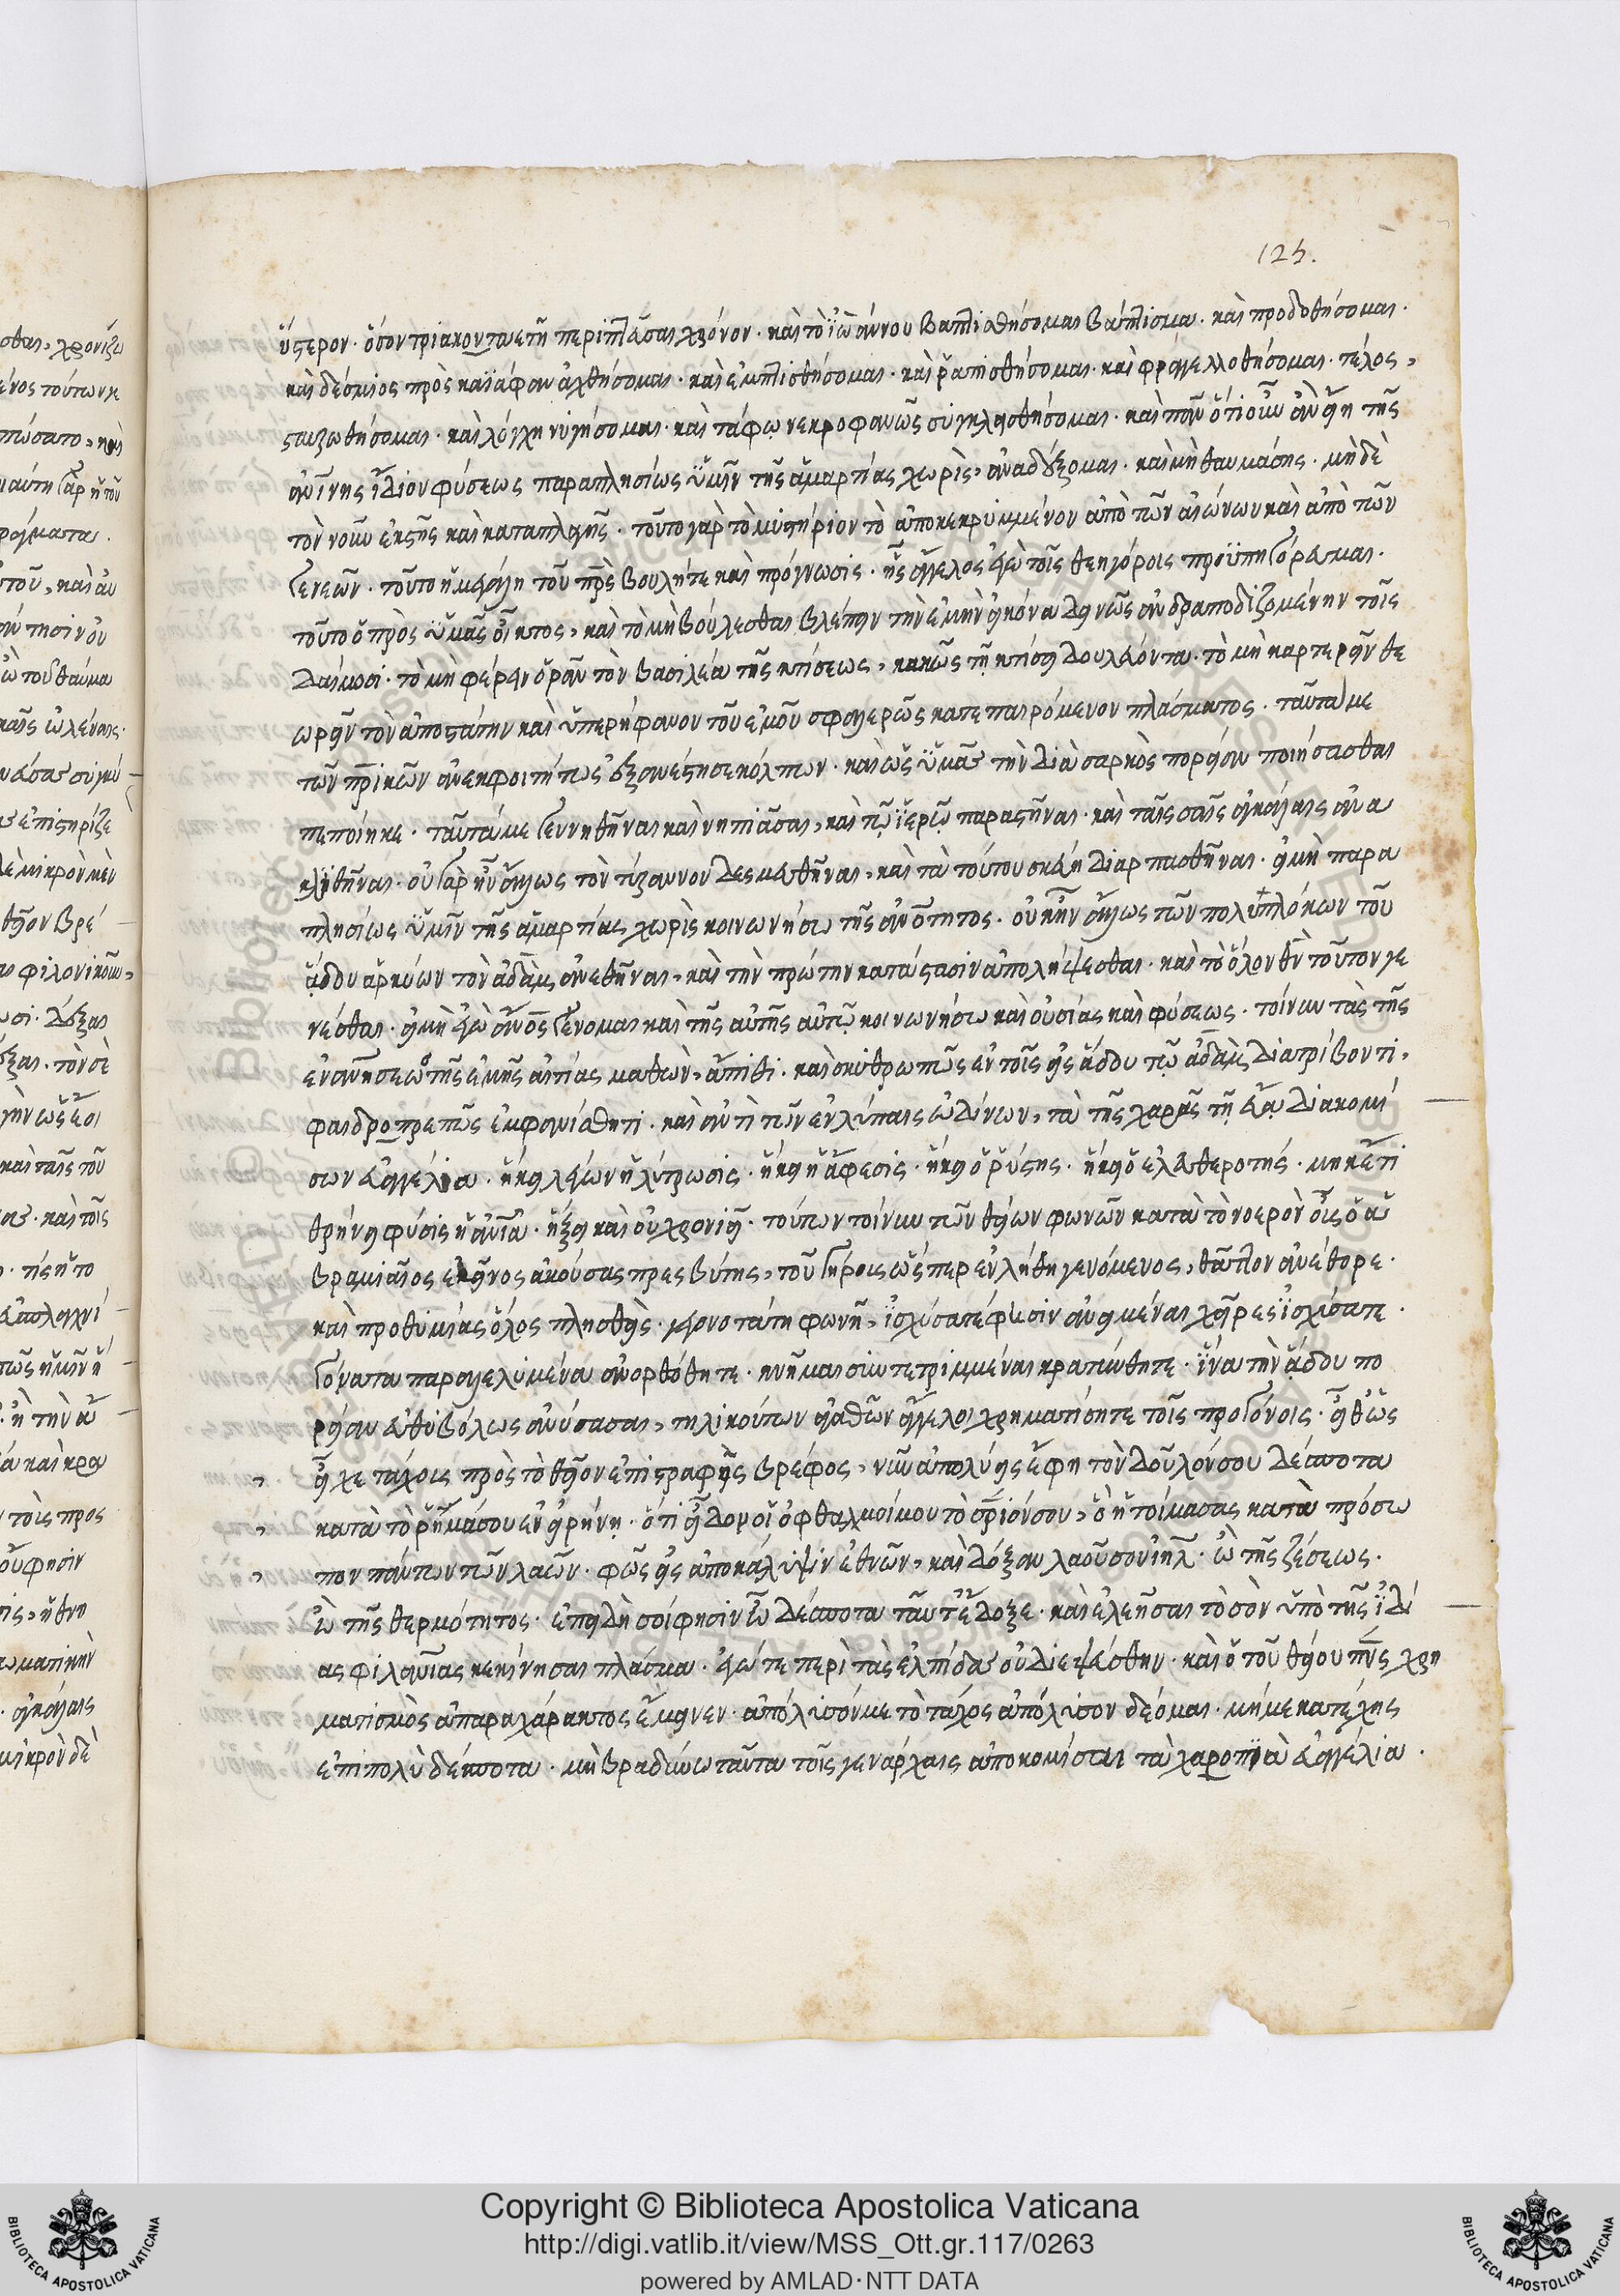 125.
ὕστερον · ὅσον τριακονταετῆ περιπλεῦσαι χρόνον · καὶ τὸ ἰωάννου βαπτισθήσομαι βάπτισμα · καὶ προδοθήσομαι ·
καὶ δέσμιος πρὸς καϊάφαν ἀχθήσομαι · καὶ ἐμπτισθήσομαι · καὶ ῥαπισθήσομαι · καὶ φραγελλοθήσομαι · τέλος,
σταυρωθήσομαι · καὶ λόγχῃ νυγήσομαι · καὶ τάφῳ νεκροφανῶς συγκλεισθήσομαι · καὶ πᾶν ὅτι οὖν ἂν εἴη τῆς
ἀνίνης ἴδιον φύσεως παραπλησίως ὑμῖν τῆς ἁμαρτίας χωρὶς, ἀναδέξομαι · καὶ μὴ θαυμάσῃς · μηδὲ
τὸν νοῦν ἐκστῇς καὶ καταπλαγῇς · τοῦτο γὰρ τὸ μυστήριον τὸ ἀποκεκρυμμένον ἀπὸ τῶν αἰώνων καὶ ἀπὸ τῶν
γενεῶν · τοῦτο ἡ μεγάλη τοῦ πρς βουλή τε καὶ πρόγνωσις · ἧς ἄγγελος ἐγὼ τοῖς θεηγόροις προϋπηγόρευμαι ·
τοῦτο ὁ πρὸς ὑμᾶς οἶκτος, καὶ τὸ μὴ βούλεσθαι βλέπειν τὴν ἐμὴν εἰκόνα δεινῶς ἀνδραποδιζομένην τοῖς
δαίμοσι · τὸ μὴ φέρειν ὁρᾶν τὸν βασιλέα τῆς κτίσεως, κακῶς τῇ κτίσει δουλεύοντα · τὸ μὴ καρτερεῖν θε
ωρεῖν τὸν ἀποστάτην καὶ ὑπερήφανον τοῦ ἐμοῦ σφαγερῶς κατεπαιρόμενον πλάσματος · ταῦτά με
τῶν πρικῶν ἀνεκφοιτήτως ἐξανέστησε κόλπων · καὶ ὡς ὑμᾶς τὴν διὰ σαρκὸς πορείαν ποιήσασθαι
πεποίηκε · ταῦτά με γεννηθῆναι καὶ νηπιᾶσαι, καὶ τῷ ἱερῷ παραστῆναι · καὶ ταῖς σαῖς ἀγκάλαις ἀνα
κλιθῆναι · οὐ γὰρ ἦν ἄλλως τὸν τύραννον δεσμευθῆναι, καὶ τὰ τούτου σκεύη διαρπασθῆναι · εἰ μὴ παρα
πλησίως ὑμῖν τῆς ἁμαρτίας χωρὶς κοινωνήσω τῆς ἀνότητος · οὐκ ἦν ἄλλως τῶν πολυπλόκων τοῦ
ᾅδου ἀρκύων τὸν ἀδὰμ ἀνεθῆναι, καὶ τὴν πρώτην κατάστασιν ἀπολήψεσθαι · καὶ τὸ ὅλον θν τοῦτον γε
νέσθαι · εἰ μὴ ἐγὼ ἀνος γένομαι καὶ τῆς αὐτῆς αὐτῷ κοινωνήσω καὶ οὐσίας καὶ φύσεως · τοίνυν τὰς τῆς
ἐνανήσεως τῆς ἐμῆς αἰτίας μαθὼν, ἄπιθι · καὶ σκυθρωπῶς ἐν τοῖς εἰς ᾅδου τῷ ἀδὰμ διατρίβοντι,
φαιδροπρεπῶς ἐμφανίσθητι · καὶ ἀντὶ τῶν ἐν λύπαις ὠδίνων, τὰ τῆς χαρᾶς τῇ εὔᾳ διακομί
σων εὐαγγέλια · ἥκει λέγων ἡ λύτρωσις · ἥκει ἡ ἄφεσις · ἥκει ὁ ῥύστης · ἥκει ὁ ἐλευθεροτής · μηκέτι
θρήνει φύσις ἡ ἀνία · ἥξει καὶ οὐ χρονιεῖ · τούτων τοίνυν τῶν θείων φωνῶν κατὰ τὸ νοερὸν οὖς ὁ ἀ
βραμιαῖος ἐκεῖνος ἀκούσας πρεσβύτης, τοῦ γήρους ὥσπερ ἐν λήθῃ γενόμενος, θᾶττον ἀνέθορε ·
καὶ προθυμίας ὅλος πλησθεὶς · γεγονοτάτῃ φωνῇ, ἰσχύσατέ φησιν ἀνειμέναι χεῖρες ἰσχύσατε ·
γόνατα παραλελυμένα ἀνορθώθητε · κνῆμαι συντετριμμέναι κραταιώθητε · ἵνα τὴν ᾅδου πο
ρείαν εὐθυβόλως ἀνύσασαι, τηλικούτων ἀγαθῶν ἄγγελοι χρηματίσητε τοῖς προγόνοις · εἶθ᾽ ὡς
εἶχε τάχους πρὸς τὸ θεῖον ἐπιστραφεὶς βρέφος, νῦν ἀπολύεις ἔφη τὸν δοῦλόν σου δέσποτα
κατὰ τὸ ῥῆμά σου ἐν εἰρήνῃ · ὅτι εἶδον οἱ ὀφθαλμοί μου τὸ σριόν σου, ὃ ἡτοίμασας κατὰ πρόσω
πον πάντων τῶν λαῶν · φῶς εἰς ἀποκάλυψιν ἐθνῶν, καὶ δόξαν λαοῦ σου ιηλ · ὢ τῆς ζέσεως ·
ὢ τῆς θερμότητος · ἐπειδή σοί φησιν ὦ δέσποτα ταῦτ᾽ ἔδοξε · καὶ ἐλεῆσαι τὸ σὸν ὑπὸ τῆς ἰδί
ας φιλανίας κεκίνησαι πλάσμα · ἐγώ τε περὶ τὰς ἐλπίδας οὐ διεψεύσθην · καὶ ὁ τοῦ θείου πνς χρη
ματισμὸς ἀπαραχάρακτος ἔμεινεν · ἀπόλυσόν με τὸ τάχος ἀπόλυσον δέομαι · μή με κατέχῃς
ἐπιπολὺ δέσποτα · μὴ βραδύνω ταῦτα τοῖς γενάρχαις ἀποκομίσαι τὰ χαροποιὰ εὐαγγέλια ·
Copyright © Biblioteca Apostolica Vaticana
http://digi.vatlib.it/view/MSS_Ott.gr.117/0263
powered by AMLAD·NTT DATA
BIBLIOTECA APOSTOLICA VATICANA
BIBLIOTECA APOSTOLICA VATICANA